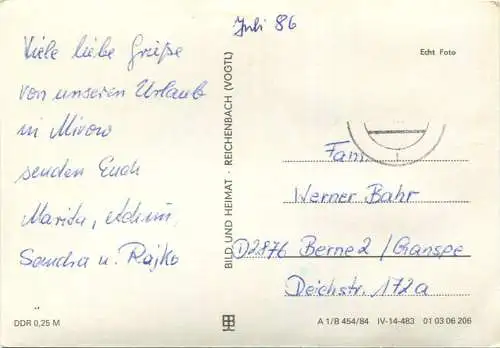 Juli 86
Viele liebe Grüße
von unseren Urlaub
in Mirow
senden Euch
Marita, Achim,
Sandra u. Rajko
BILD UND HEIMAT · REICHENBACH (VOGTL)
Echt Foto
Fam.
Werner Bahr
D2876 Berne 2 / Ganspe
Deichstr. 172a
DDR 0,25 M
A 1/B 454/84 IV-14-483 01 03 06 206